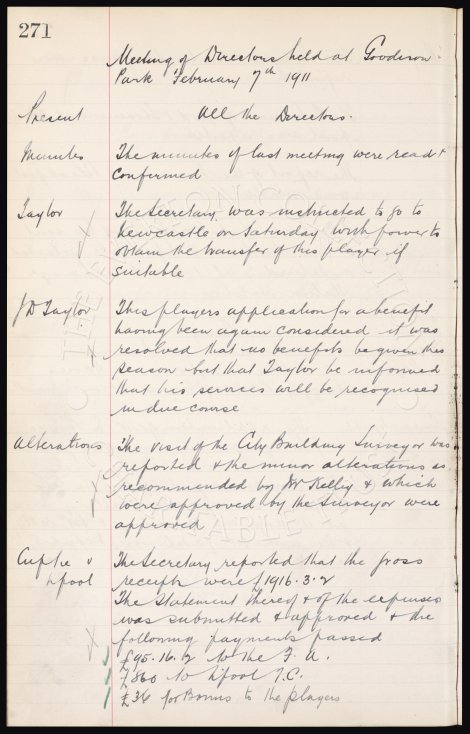 271
Meeting of Directors held at Goodison
Park February 7th 1911
Present All the Directors.
Minutes The minutes of last meeting were read +
confirmed
Taylor The Secretary was instructed to go to
Newcastle on Saturday with power to
obtain the transfer of this player if
suitable
J D Taylor This players application for a benefit
having been again considered it was
resolved that no benefits be given this
season but that Taylor be informed
that his services will be recognised
in due course
Alterations The visit of the City Building Surveyor was
reported + the minor alterations as
recommended by Dr Kelly + which
were approved by the Surveyor were
approved
Cuptie v The Secretary reported that the gross
Lpool receipts were £1916.3.2
The Statement thereof + of the expenses
was submitted + approved + the
following payments passed
£95.16.2 to the F.A.
£860 to Lpool F.C.
£36 for Bonus to the players